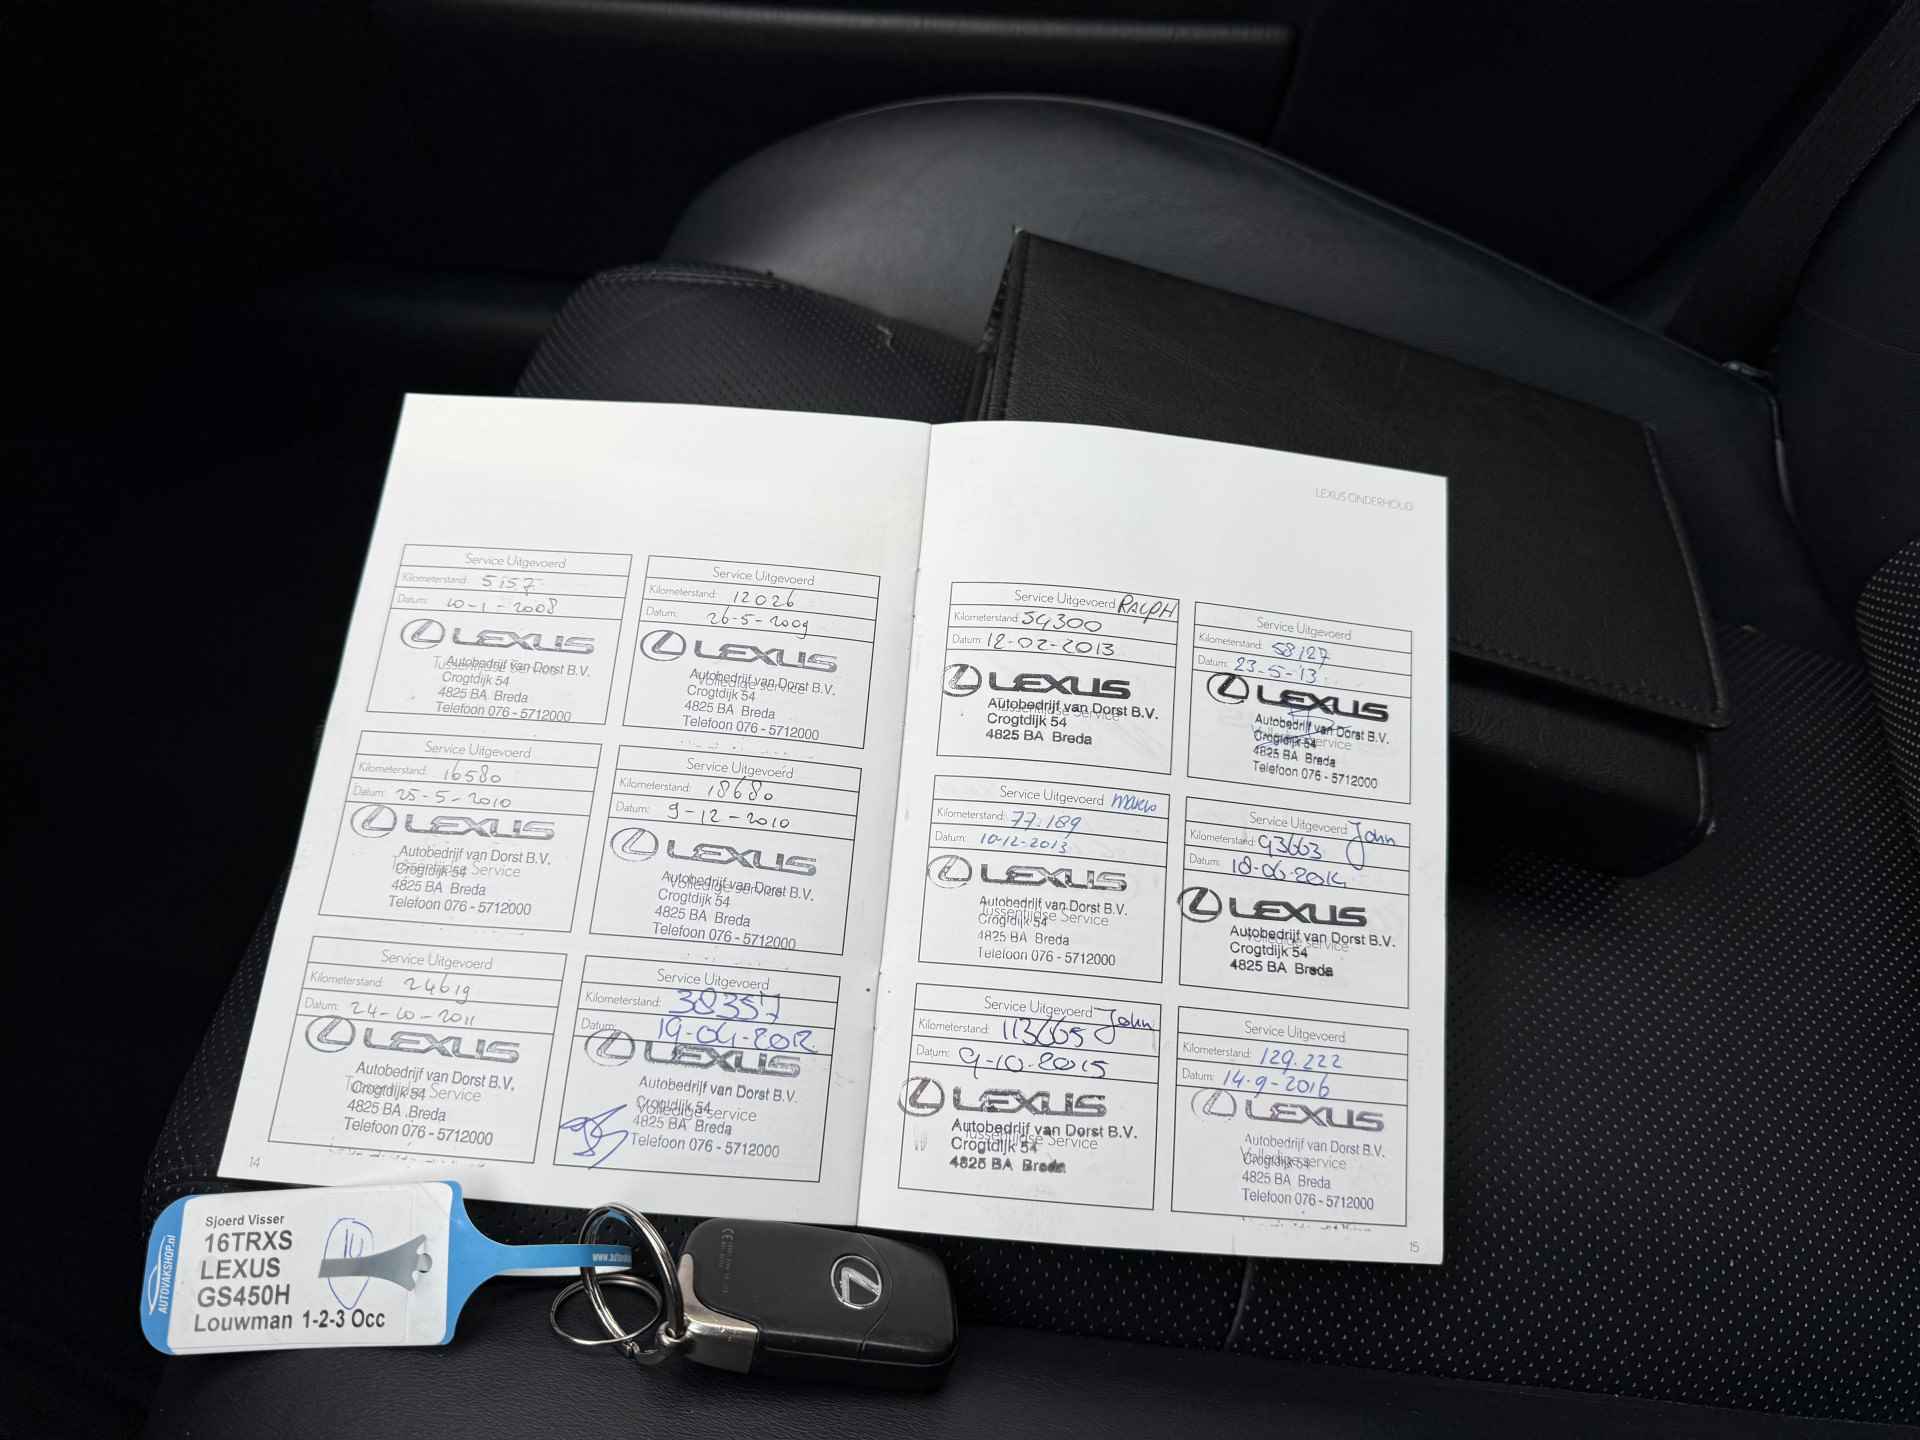 LEXUS ONDERHOUD
Service Uitgevoerd
Kilometerstand: 5157
Datum: 10-1-2008
LEXUS
Tussentijdse Service
Autobedrijf van Dorst B.V.
Crogtdijk 54
4825 BA Breda
Telefoon 076 - 5712000
Service Uitgevoerd
Kilometerstand: 12026
Datum: 26-5-2009
LEXUS
Autobedrijf van Dorst B.V.
Volledige service
Crogtdijk 54
4825 BA Breda
Telefoon 076 - 5712000
Service Uitgevoerd
Kilometerstand: 16580
Datum: 25-5-2010
LEXUS
Autobedrijf van Dorst B.V.
Tussentijdse Service
Crogtdijk 54
4825 BA Breda
Telefoon 076 - 5712000
Service Uitgevoerd
Kilometerstand: 18680
Datum: 9-12-2010
LEXUS
Autobedrijf van Dorst B.V.
Volledige service
Crogtdijk 54
4825 BA Breda
Telefoon 076 - 5712000
Service Uitgevoerd
Kilometerstand: 24619
Datum: 24-10-2011
LEXUS
Autobedrijf van Dorst B.V.
Tussentijdse Service
Crogtdijk 54
4825 BA Breda
Telefoon 076 - 5712000
Service Uitgevoerd
Kilometerstand: 38357
Datum: 19-04-2012
LEXUS
Autobedrijf van Dorst B.V.
Crogtdijk 54
Volledige service
4825 BA Breda
Telefoon 076 - 5712000
14
Service Uitgevoerd RALPH
Kilometerstand: 54300
Datum: 12-02-2013
LEXUS
Autobedrijf van Dorst B.V.
Tussentijdse Service
Crogtdijk 54
4825 BA Breda
Service Uitgevoerd
Kilometerstand: 58127
Datum: 23-5-'13
LEXUS
Autobedrijf van Dorst B.V.
Volledige service
Crogtdijk 54
4825 BA Breda
Telefoon 076 - 5712000
Service Uitgevoerd
Kilometerstand: 77.189
Datum: 10-12-2013
LEXUS
Autobedrijf van Dorst B.V.
Tussentijdse Service
Crogtdijk 54
4825 BA Breda
Telefoon 076 - 5712000
Service Uitgevoerd John
Kilometerstand: 93663
Datum: 18-06-2014
LEXUS
Autobedrijf van Dorst B.V.
Volledige service
Crogtdijk 54
4825 BA Breda
Service Uitgevoerd John
Kilometerstand: 113665
Datum: 9-10-2015
LEXUS
Autobedrijf van Dorst B.V.
Tussentijdse Service
Crogtdijk 54
4825 BA Breda
Service Uitgevoerd
Kilometerstand: 129.222
Datum: 14-9-2016
LEXUS
Autobedrijf van Dorst B.V.
Volledige service
Crogtdijk 54
4825 BA Breda
Telefoon 076 - 5712000
15
AUTOVAKSHOP.nl
Sjoerd Visser
16TRXS
LEXUS
GS450H
Louwman 1-2-3 Occ